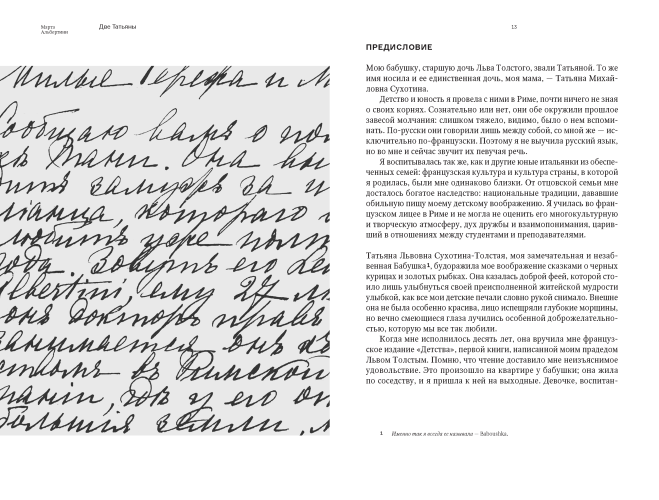 Марта
Альбертини
Две Татьяны
13
ПРЕДИСЛОВИЕ
Мою бабушку, старшую дочь Льва Толстого, звали Татьяной. То же
имя носила и ее единственная дочь, моя мама, — Татьяна Михай-
ловна Сухотина.
Детство и юность я провела с ними в Риме, почти ничего не зная
о своих корнях. Сознательно или нет, они обе окружили прошлое
завесой молчания: слишком тяжело, видимо, было о нем вспоми-
нать. По-русски они говорили лишь между собой, со мной же — ис-
ключительно по-французски. Поэтому я не выучила русский язык,
но во мне и сейчас звучит их певучая речь.
Я воспитывалась так же, как и другие юные итальянки из обеспе-
ченных семей: французская культура и культура страны, в которой
я родилась, были мне одинаково близки. От отцовской семьи мне
досталось богатое наследство: национальные традиции, дававшие
обильную пищу моему детскому воображению. Я училась во фран-
цузском лицее в Риме и не могла не оценить его многокультурную
и творческую атмосферу, дух дружбы и взаимопонимания, царив-
ший в отношениях между студентами и преподавателями.
Татьяна Львовна Сухотина-Толстая, моя замечательная и незаб-
венная Бабушка¹, будоражила мое воображение сказками о черных
курицах и золотых рыбках. Она казалась доброй феей, которой сто-
ило лишь улыбнуться своей преисполненной житейской мудрости
улыбкой, как все мои детские печали словно рукой снимало. Внешне
она не была особенно красива, лицо испещряли глубокие морщины,
но вечно смеющиеся глаза лучились особенной доброжелательно-
стью, которую мы все так любили.
Когда мне исполнилось десять лет, она вручила мне француз-
ское издание «Детства», первой книги, написанной моим прадедом
Львом Толстым. Помню, что чтение доставило мне неизъяснимое
удовольствие. Это произошло на квартире у бабушки; она жила
по соседству, и я пришла к ней на выходные. Девочке, воспитан-
1 Именно так я всегда ее называла — Baboushka.
Милые Сережа и М
Сообщаю вамъ о
Тани. Она
замужъ за
котораго
любитъ уже
года. Зовутъ его
Albertini, ему 27
онъ докторъ правъ
занимается онъ
въ Римской
гдѣ у его
большія земли.